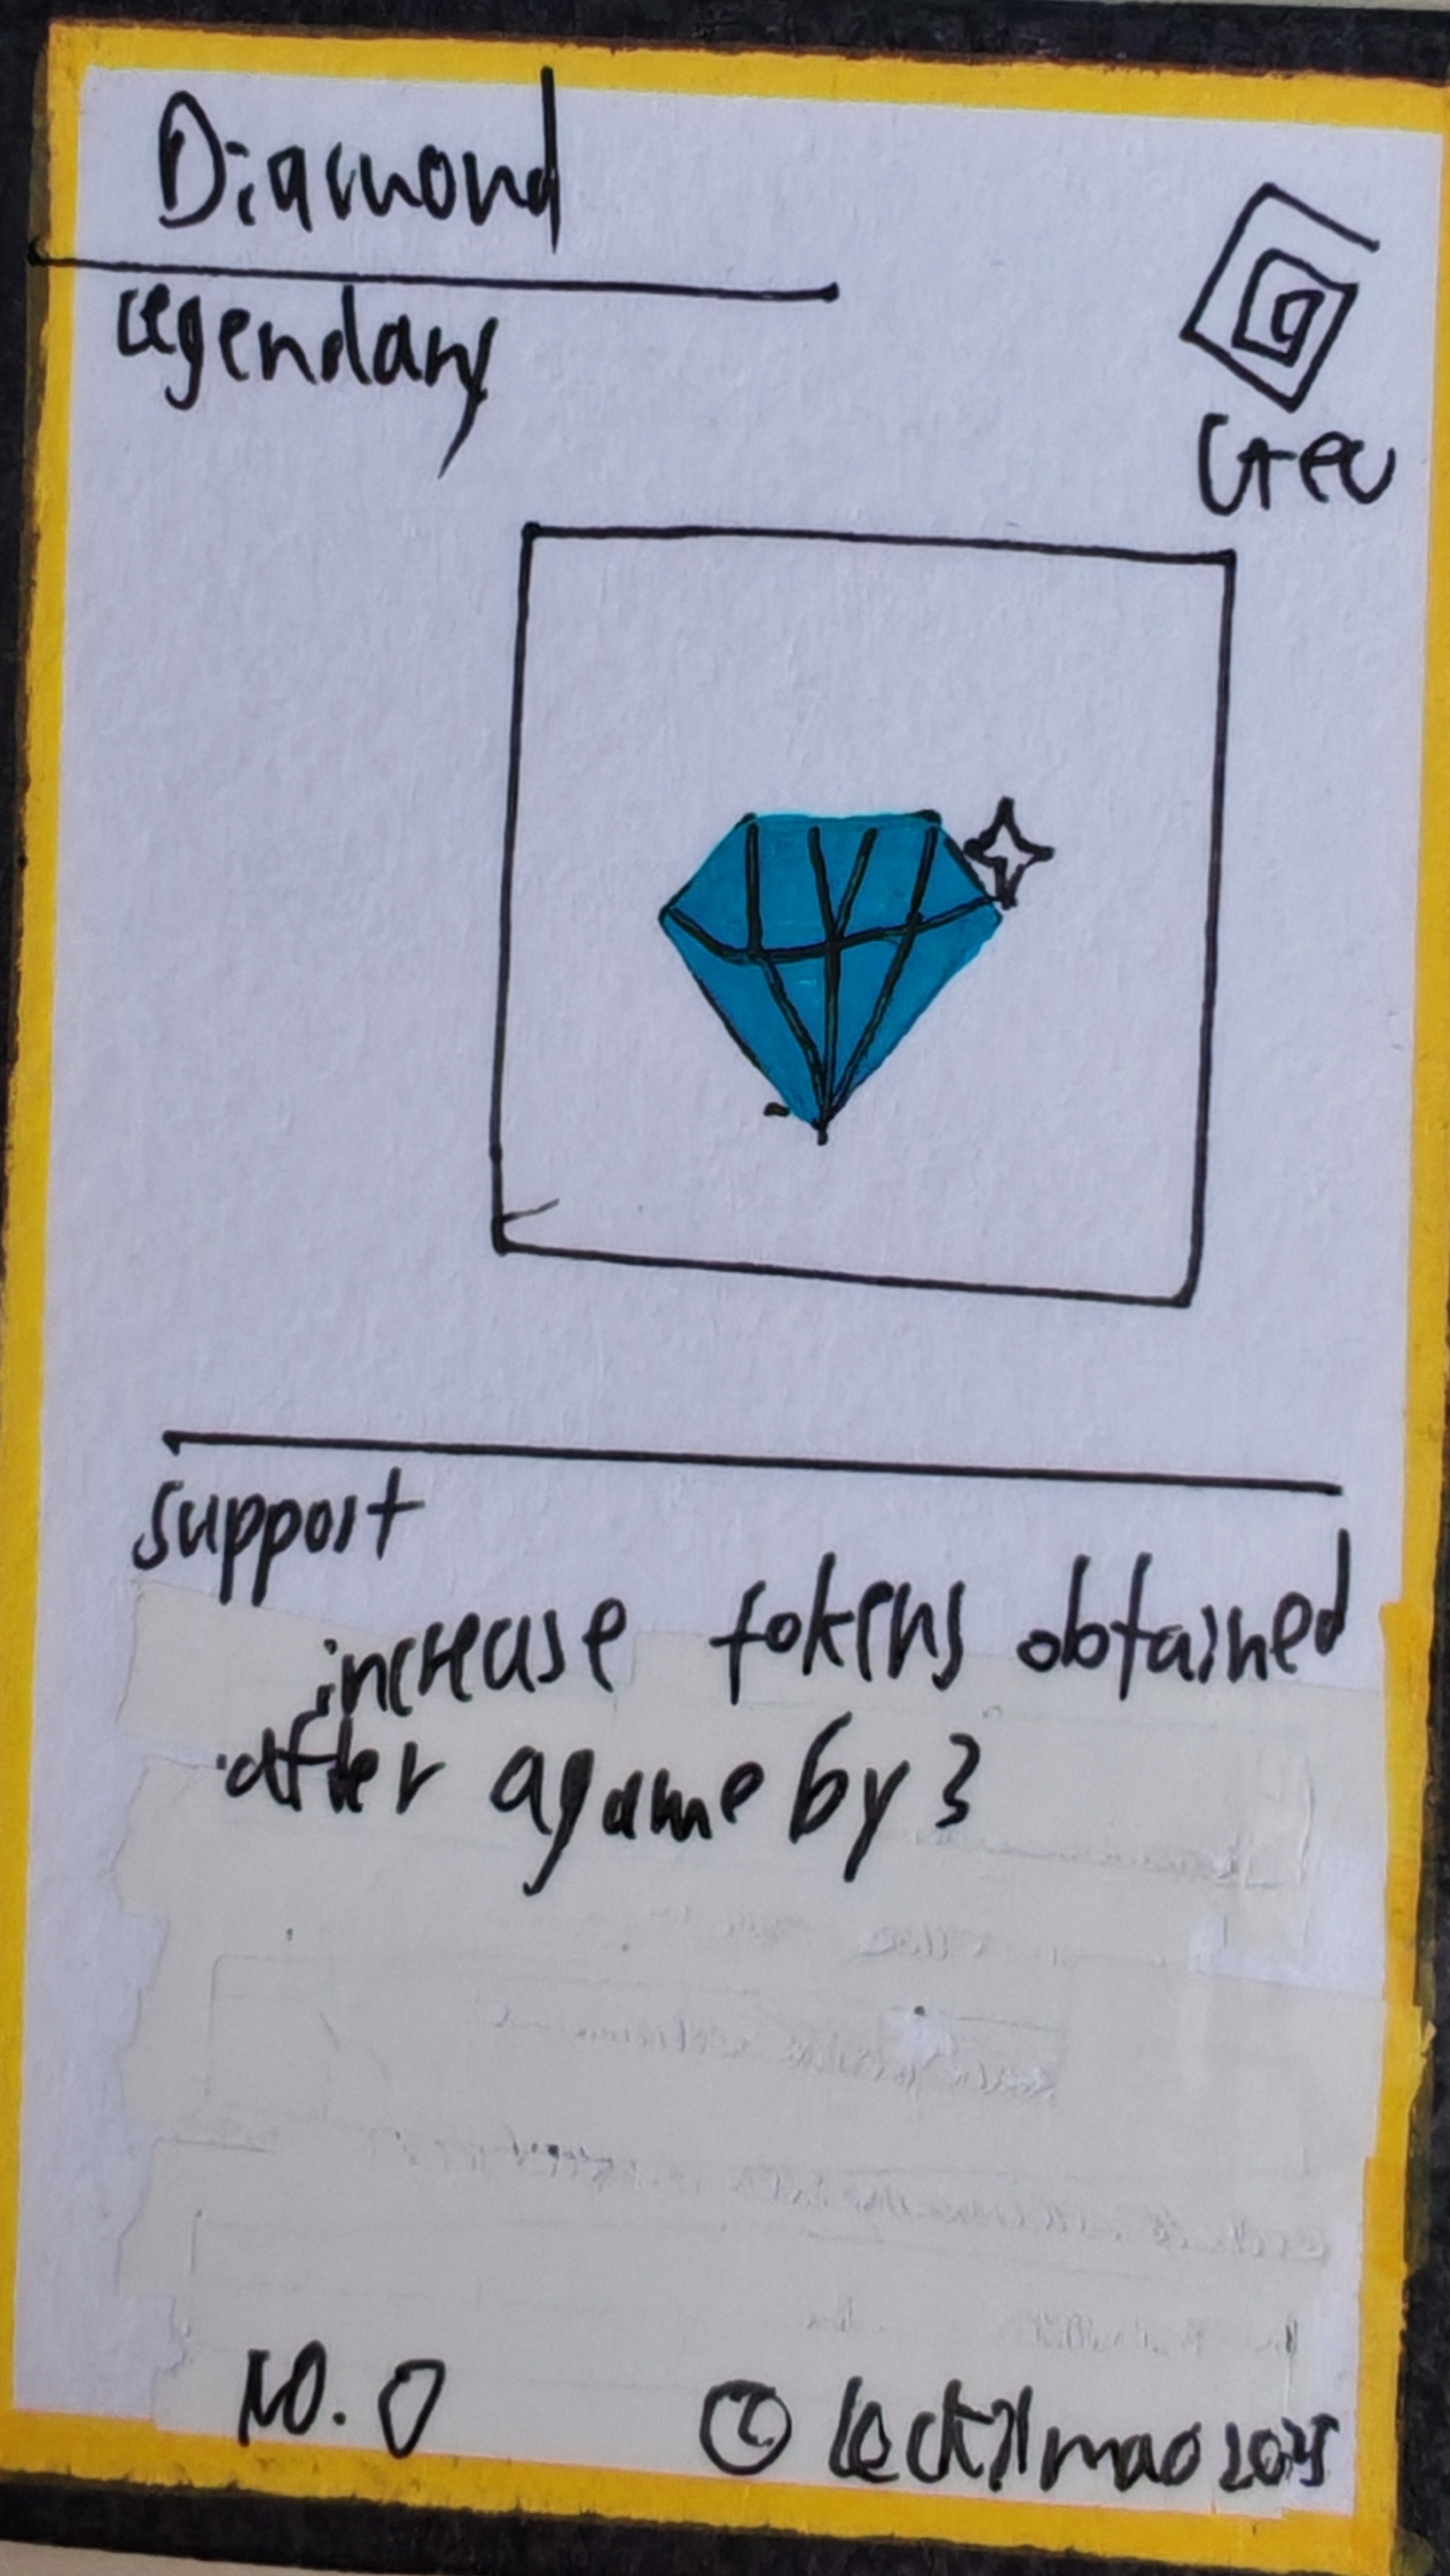 Diamond
legendary
Geo
support
increase tokens obtained
after a game by 3
NO. 0
© 2025